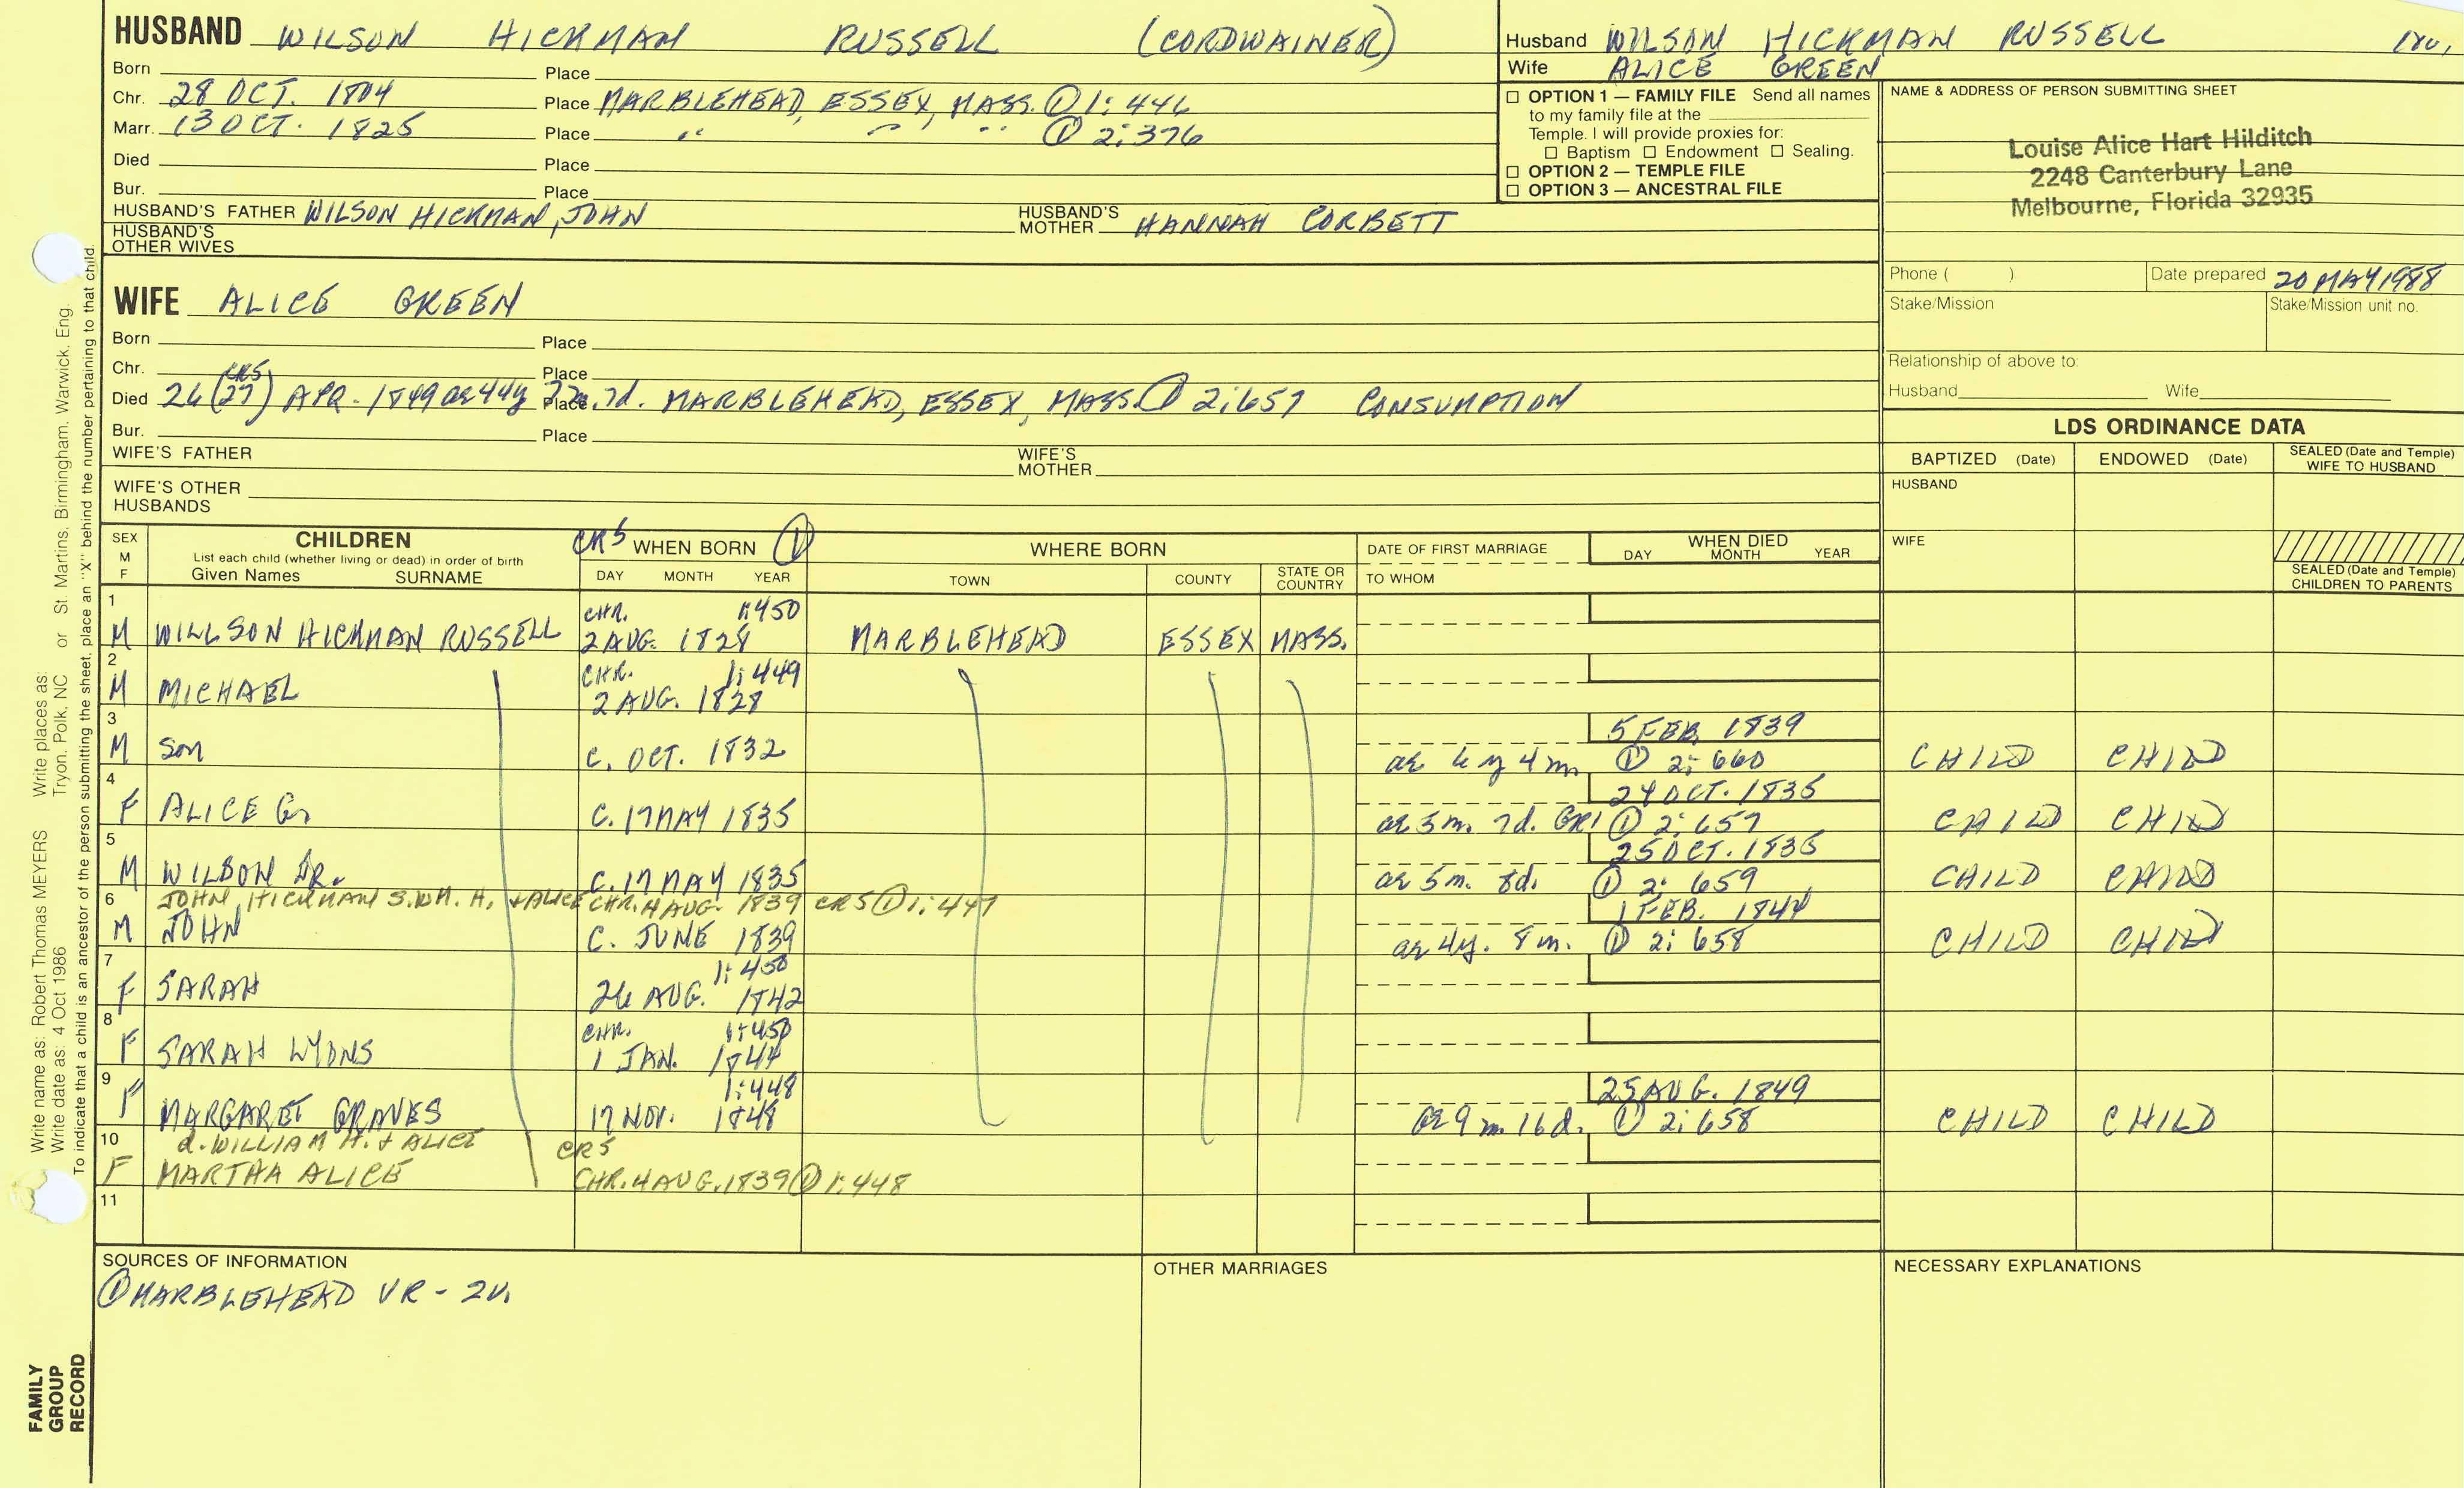 HUSBAND WILSON HICKMAN RUSSELL (CORDWAINER)
Born Place
Chr. 28 OCT. 1804 Place MARBLEHEAD, ESSEX, MASS. ① 1:446
Marr. 13 OCT. 1825 Place " " " ① 2:376
Died Place
Bur. Place
HUSBAND'S FATHER WILSON HICKMAN, JOHN HUSBAND'S MOTHER HANNAH CORBETT
HUSBAND'S OTHER WIVES
Husband WILSON HICKMAN RUSSELL
Wife ALICE GREEN
☐ OPTION 1 — FAMILY FILE Send all names
to my family file at the
Temple. I will provide proxies for:
☐ Baptism ☐ Endowment ☐ Sealing.
☐ OPTION 2 — TEMPLE FILE
☐ OPTION 3 — ANCESTRAL FILE
NAME & ADDRESS OF PERSON SUBMITTING SHEET
Louise Alice Hart Hilditch
2248 Canterbury Lane
Melbourne, Florida 32935
Phone ( ) Date prepared 20 MAY 1988
Stake/Mission Stake/Mission unit no.
Relationship of above to:
Husband Wife
WIFE ALICE GREEN
Born Place
Chr. Place
CR5
Died 26 (27) APR. 1849 ae 44y 7m. 7d. Place MARBLEHEAD, ESSEX, MASS. ① 2:657 CONSUMPTION
Bur. Place
WIFE'S FATHER WIFE'S MOTHER
WIFE'S OTHER HUSBANDS
LDS ORDINANCE DATA
BAPTIZED (Date) ENDOWED (Date) SEALED (Date and Temple) WIFE TO HUSBAND
HUSBAND
WIFE
SEALED (Date and Temple) CHILDREN TO PARENTS
SEX M F CHILDREN
List each child (whether living or dead) in order of birth
Given Names SURNAME
CR5 WHEN BORN ①
DAY MONTH YEAR
WHERE BORN
TOWN COUNTY STATE OR COUNTRY
DATE OF FIRST MARRIAGE
TO WHOM
WHEN DIED
DAY MONTH YEAR
1 CHR. 1:450
M WILLSON HICKMAN RUSSELL 2 AUG. 1828 MARBLEHEAD ESSEX MASS.
2 CHR. 1:449
M MICHAEL 2 AUG. 1828
3 5 FEB. 1839
M Son C. OCT. 1832 ae 6 y 4 m ① 2:660 CHILD CHILD
4 24 OCT. 1835
F ALICE G. C. 17 MAY 1835 ae 5m. 7d. GR1 ① 2:657 CHILD CHILD
5 25 OCT. 1835
M WILSON JR. C. 17 MAY 1835 ae 5m. 8d. ① 2:659 CHILD CHILD
6 JOHN HICKMAN S. WM. H. + ALICE CHR. 4 AUG. 1839 CR5 ① 1:447 1 FEB. 1844
M JOHN C. JUNE 1839 ae 4y. 8 m. ① 2:658 CHILD CHILD
7 1:450
F SARAH 26 AUG. 1842
8 CHR. 1:450
F SARAH LYONS 1 JAN. 1844
9 1:448 25 AUG. 1849
F MARGARET GRAVES 17 NOV. 1848 ae 9 m. 16 d. ① 2:658 CHILD CHILD
10 d. WILLIAM H. + ALICE CR5
F MARTHA ALICE CHR. 4 AUG. 1839 ① 1:448
11
SOURCES OF INFORMATION
① MARBLEHEAD VR - 2V.
OTHER MARRIAGES
NECESSARY EXPLANATIONS
Write name as: Robert Thomas MEYERS Write places as: Tryon, Polk, NC or St. Martins, Birmingham, Warwick, Eng.
Write date as: 4 Oct 1986
To indicate that a child is an ancestor of the person submitting the sheet, place an "X" behind the number pertaining to that child.
FAMILY
GROUP
RECORD